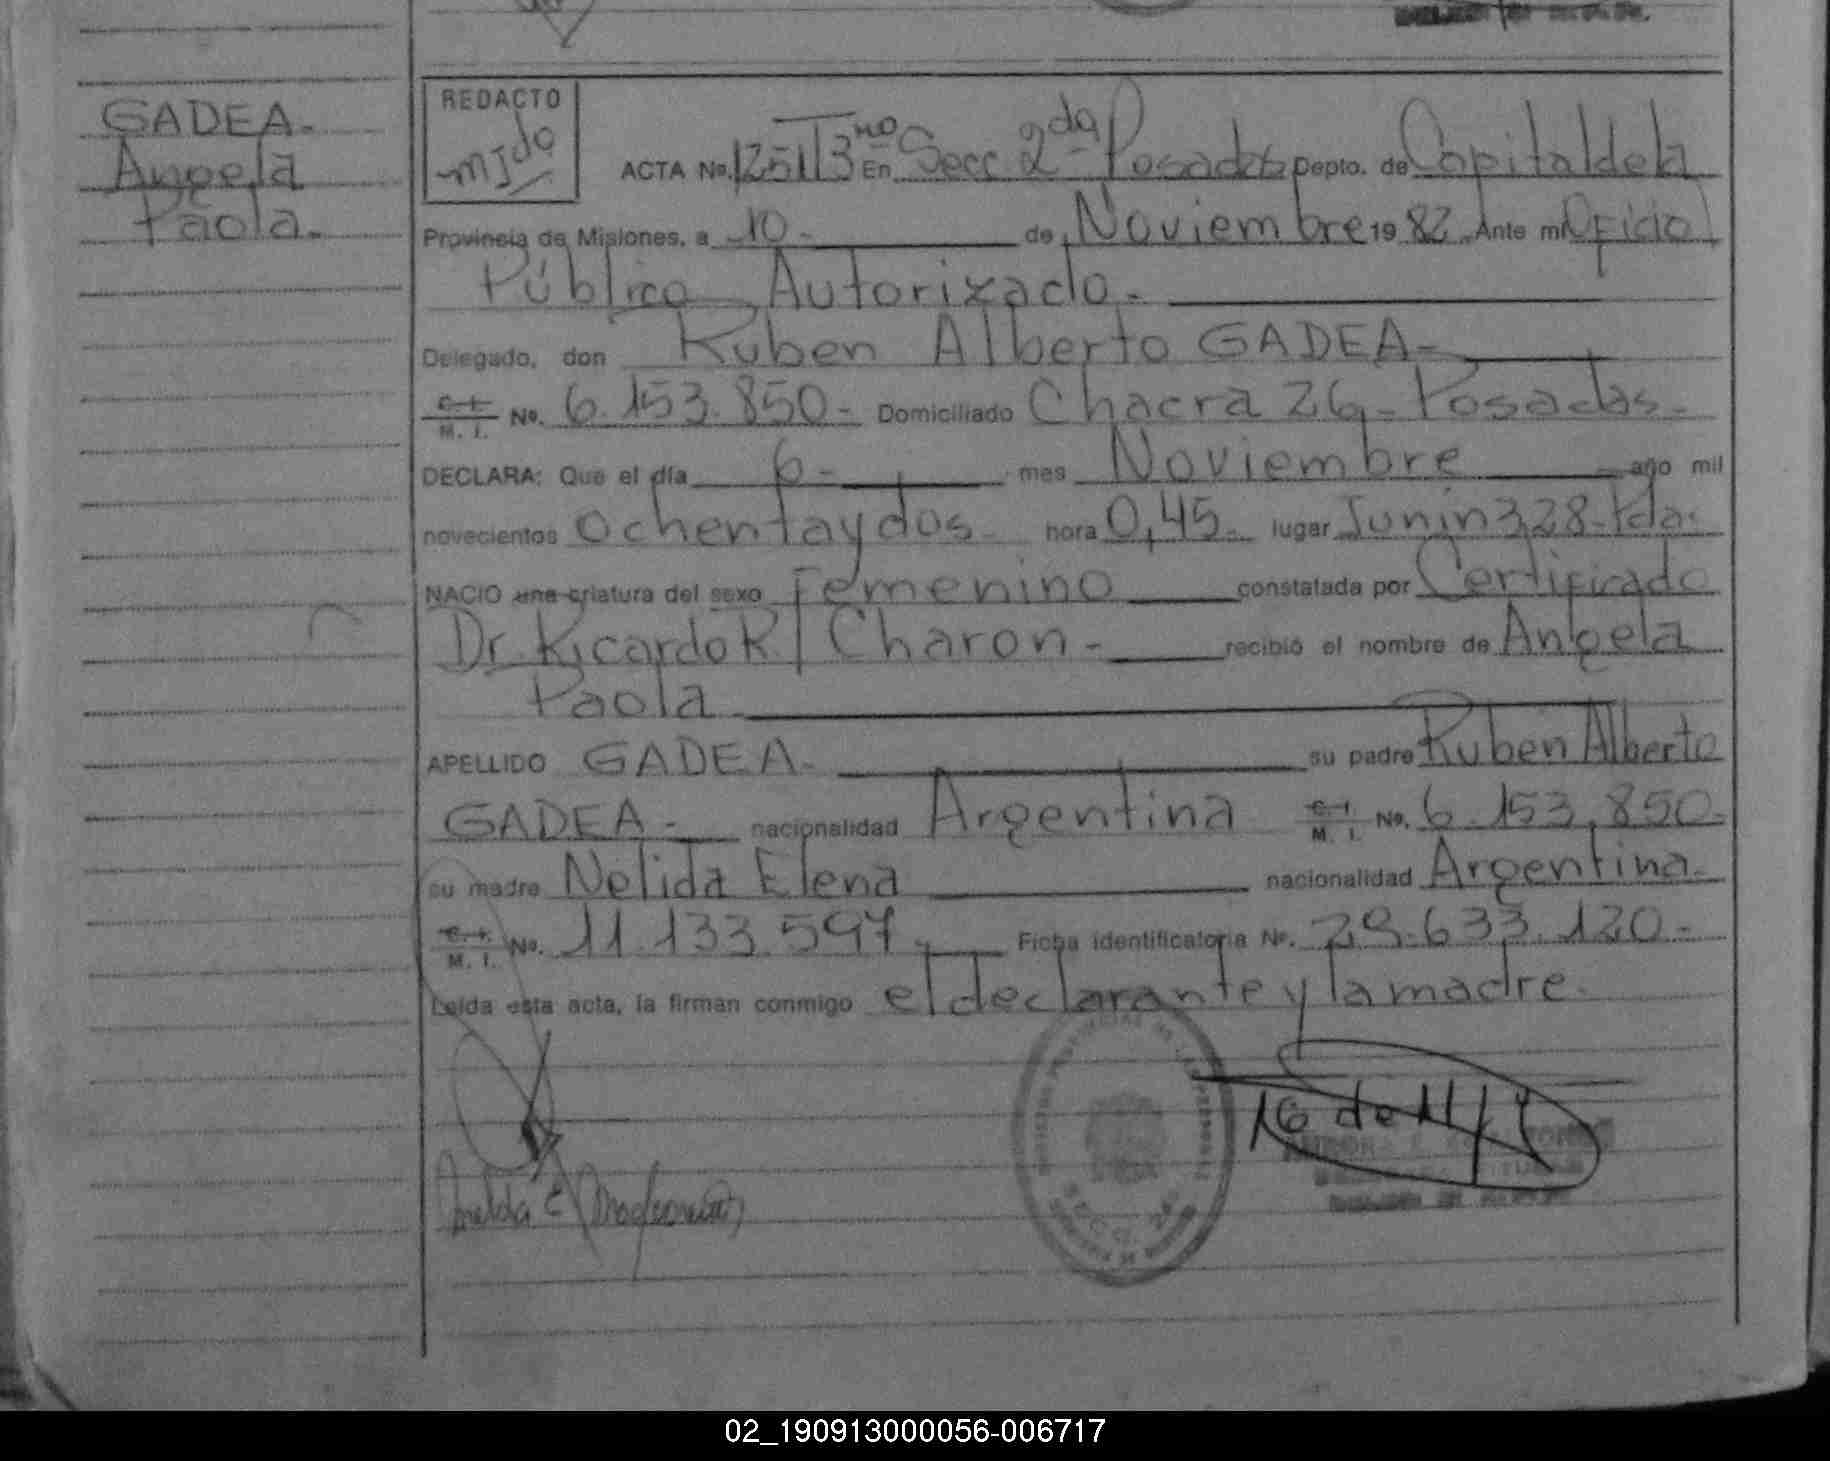 GADEA.
Angela
Paola.
REDACTO
ACTA No. 1251 T3no En Secc 2da Posadas Depto. de Capital de la
Provincia de Misiones, a 10 - de Noviembre 19 82 Ante mi Oficial
Público Autorizado -
Delegado, don Ruben Alberto GADEA -
C. I.
M. I. No. 6.153.850 - Domiciliado Chacra 26 - Posadas -
DECLARA: Que el día 6 - mes Noviembre año mil
novecientos ochenta y dos - hora 0,45 - lugar Junin 328 - Pdas.
NACIO una criatura del sexo Femenino constatada por Certificado
Dr. Ricardo R Charon - recibió el nombre de Angela
Paola
APELLIDO GADEA - su padre Ruben Alberto
GADEA - nacionalidad Argentina C. I.
M. I. No. 6.153.850 -
su madre Nelida Elena nacionalidad Argentina.
C. I.
M. I. No. 11.133.597 - Ficha identificatoria No. 29.633.120 -
Leida esta acta, la firman conmigo el declarante y la madre.
02_190913000056-006717